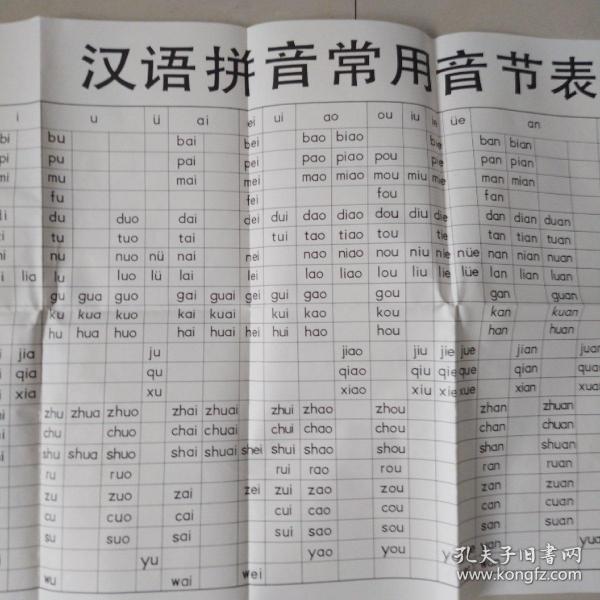 汉语拼音常用音节表
i u ü ai ei ui ao ou iu in üe an
bi bu bai bei bao biao bie ban bian
pi pu pai pei pao piao pou pie pan pian
mi mu mai mei mao miao mou miu mie man mian
fu fei fou fan
di du duo dai dei dui dao diao dou diu die dan dian duan
ti tu tuo tai tui tao tiao tou tie tan tian tuan
nu nuo nü nai nei nao niao nou niu nie nüe nan nian nuan
lia lu luo lü lai lei lao liao lou liu lie lüe lan lian luan
gu gua guo gai guai gei gui gao gou gan guan
ku kua kuo kai kuai kui kao kou kan kuan
hu hua huo hai huai hei hui hao hou han huan
jia ju jiao jiu jie jue jian juan
qia qu qiao qiu qie que qian quan
xia xu xiao xiu xie xue xian
zhu zhua zhuo zhai zhuai zhui zhao zhou zhan zhuan
chu chuo chai chuai chui chao chou chan chuan
shu shua shuo shai shuai shei shui shao shou shan shuan
ru ruo rui rao rou ran ruan
zu zuo zai zei zui zao zou zan zuan
cu cuo cai cui cao cou can cuan
su suo sai sui sao sou san suan
yu yao you
wu wai wei
孔夫子旧书网
www.kongfz.com